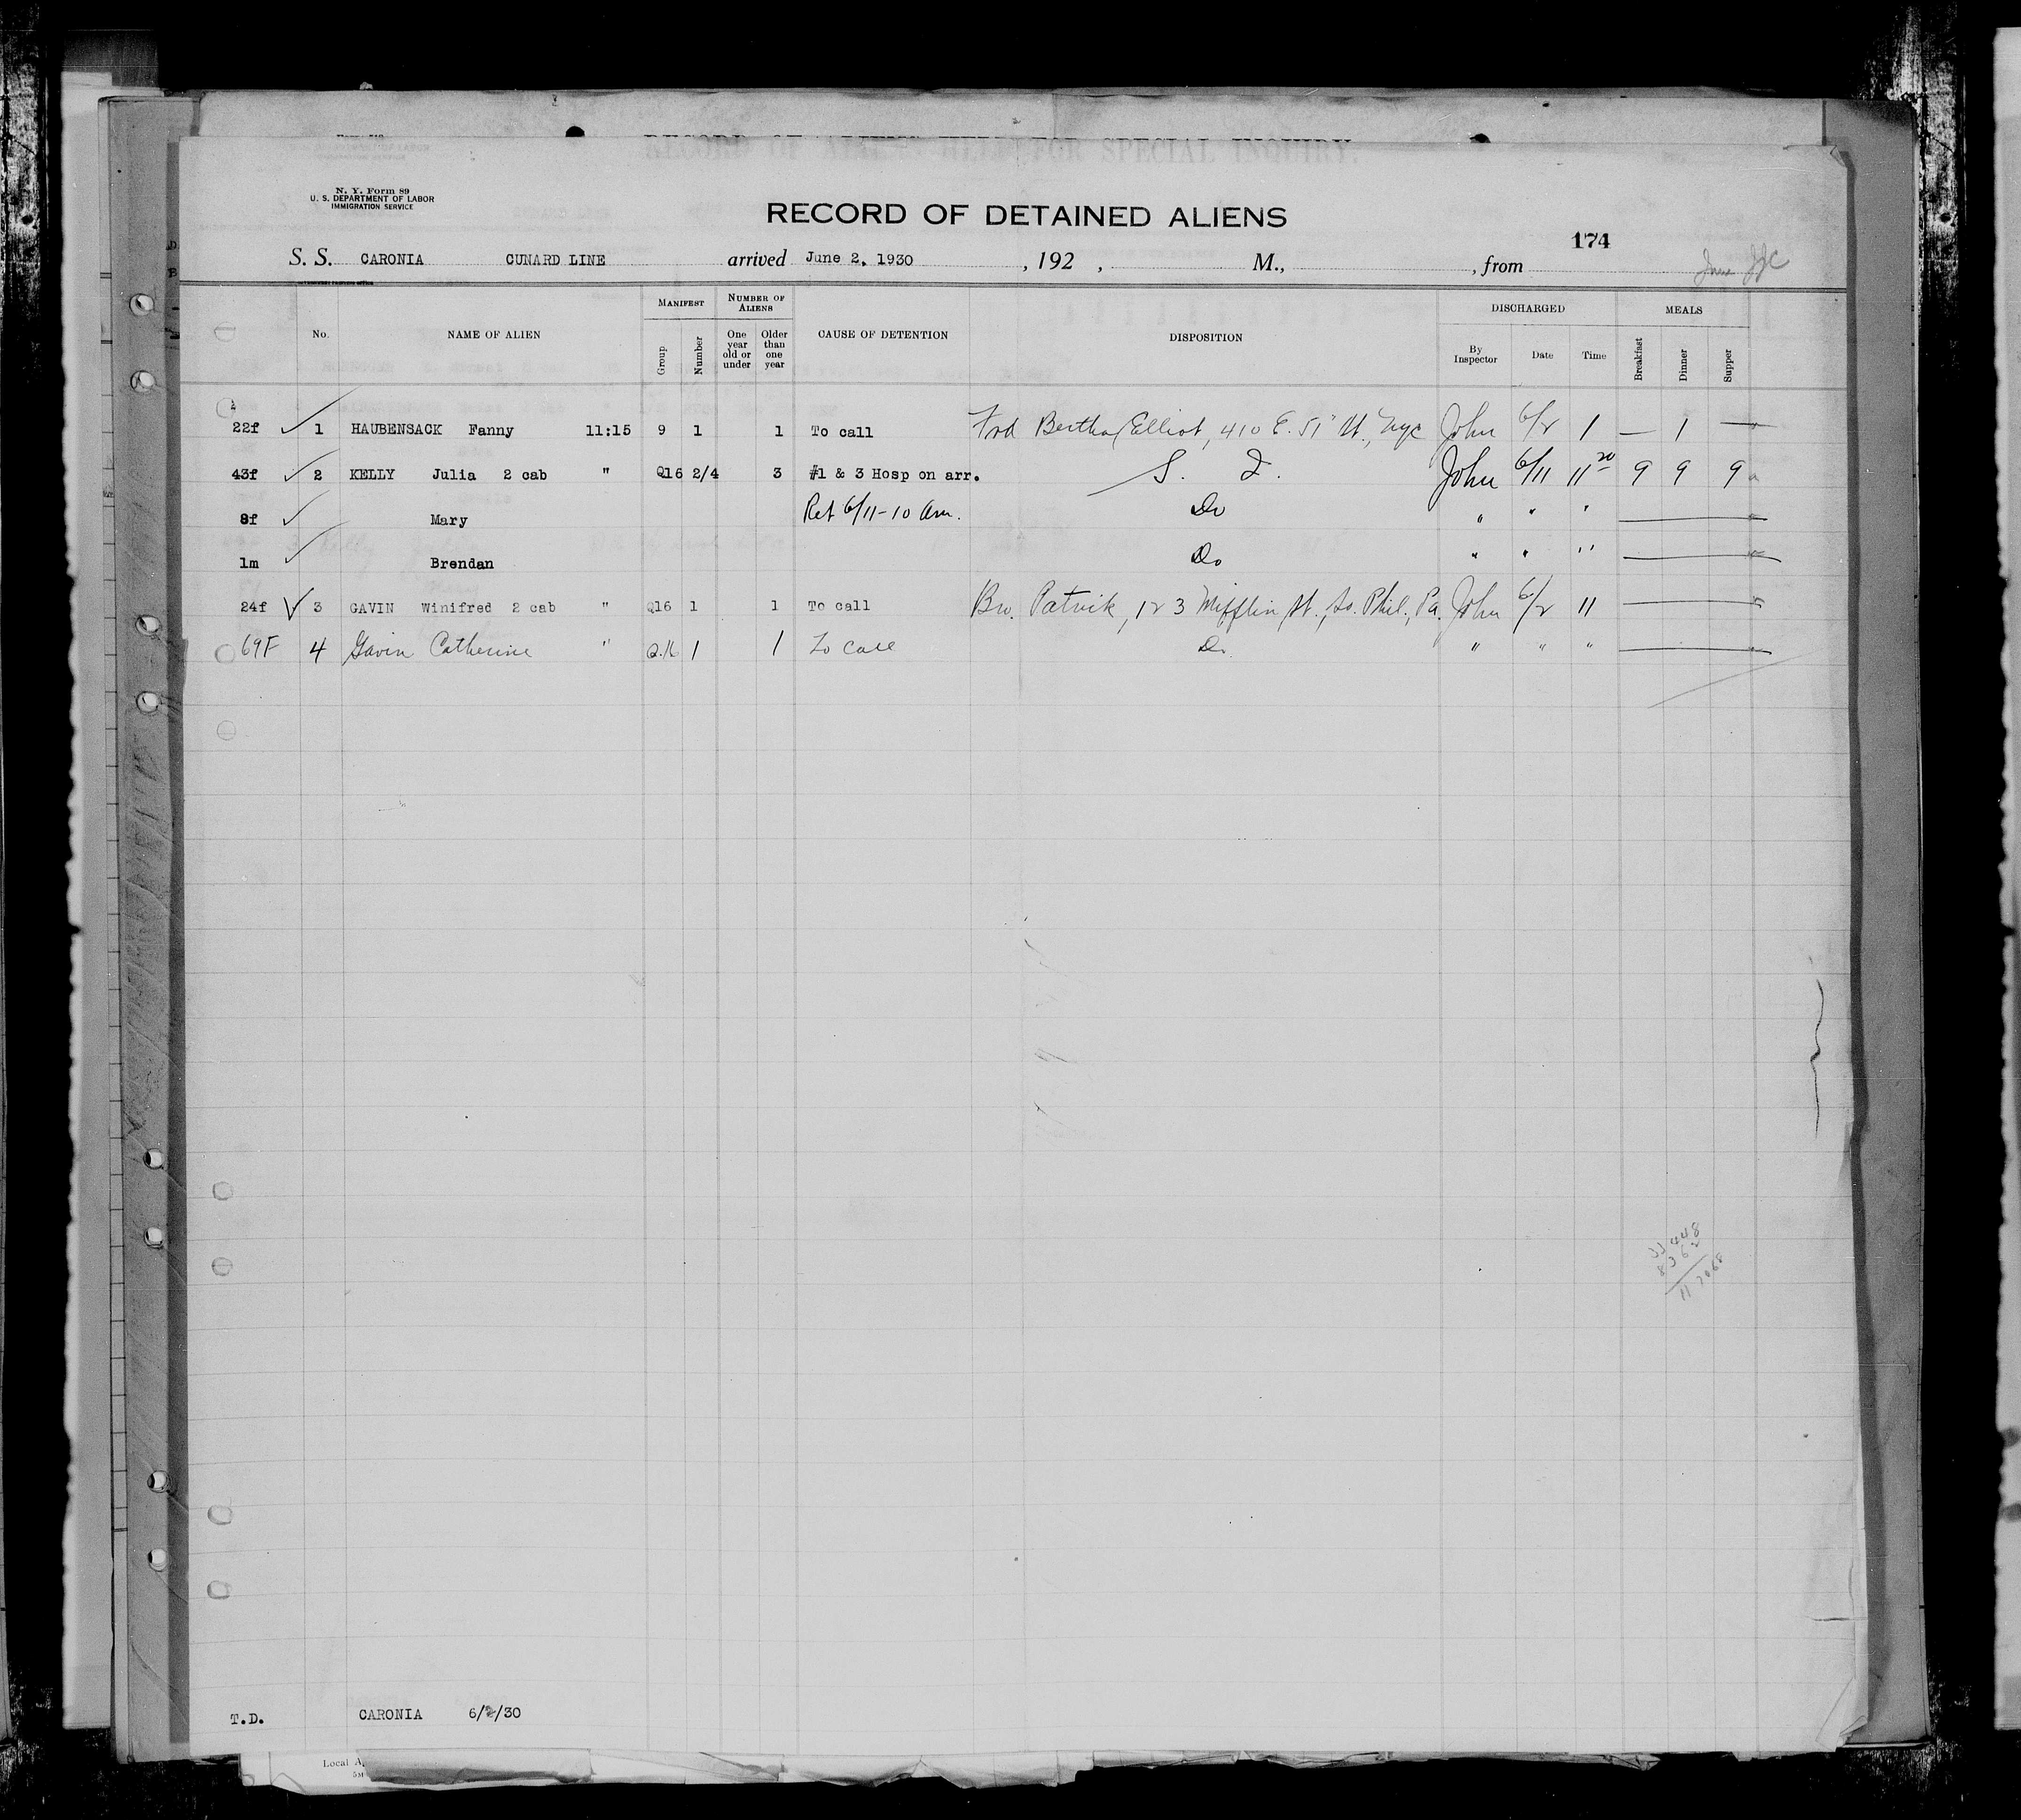 RECORD OF ALIENS HELD FOR SPECIAL INQUIRY.
N. Y. Form 89
U. S. DEPARTMENT OF LABOR
IMMIGRATION SERVICE
RECORD OF DETAINED ALIENS
174
S. S. CARONIA CUNARD LINE arrived June 2, 1930 , 192 , M., from
No. NAME OF ALIEN MANIFEST Group Number NUMBER OF ALIENS One year old or under Older than one year CAUSE OF DETENTION DISPOSITION DISCHARGED By Inspector Date Time MEALS Breakfast Dinner Supper
22f 1 HAUBENSACK Fanny 11:15 9 1 1 To call Frd Bertha Elliot, 410 E. 51" St., Nyc John 6/2 1 — 1 —
43f 2 KELLY Julia 2 cab " Q16 2/4 3 #1 & 3 Hosp on arr. S. I. John 6/11 11 20 9 9 9
8f Mary Ret 6/11-10 am. Do " " "
1m Brendan Do " " "
24f 3 GAVIN Winifred 2 cab " Q16 1 1 To call Bro. Patrick, 123 Mifflin St., So. Phil., Pa. John 6/2 11
69F 4 Gavin Catherine " Q.16 1 1 To call Do. " " "
T.D. CARONIA 6/2/30